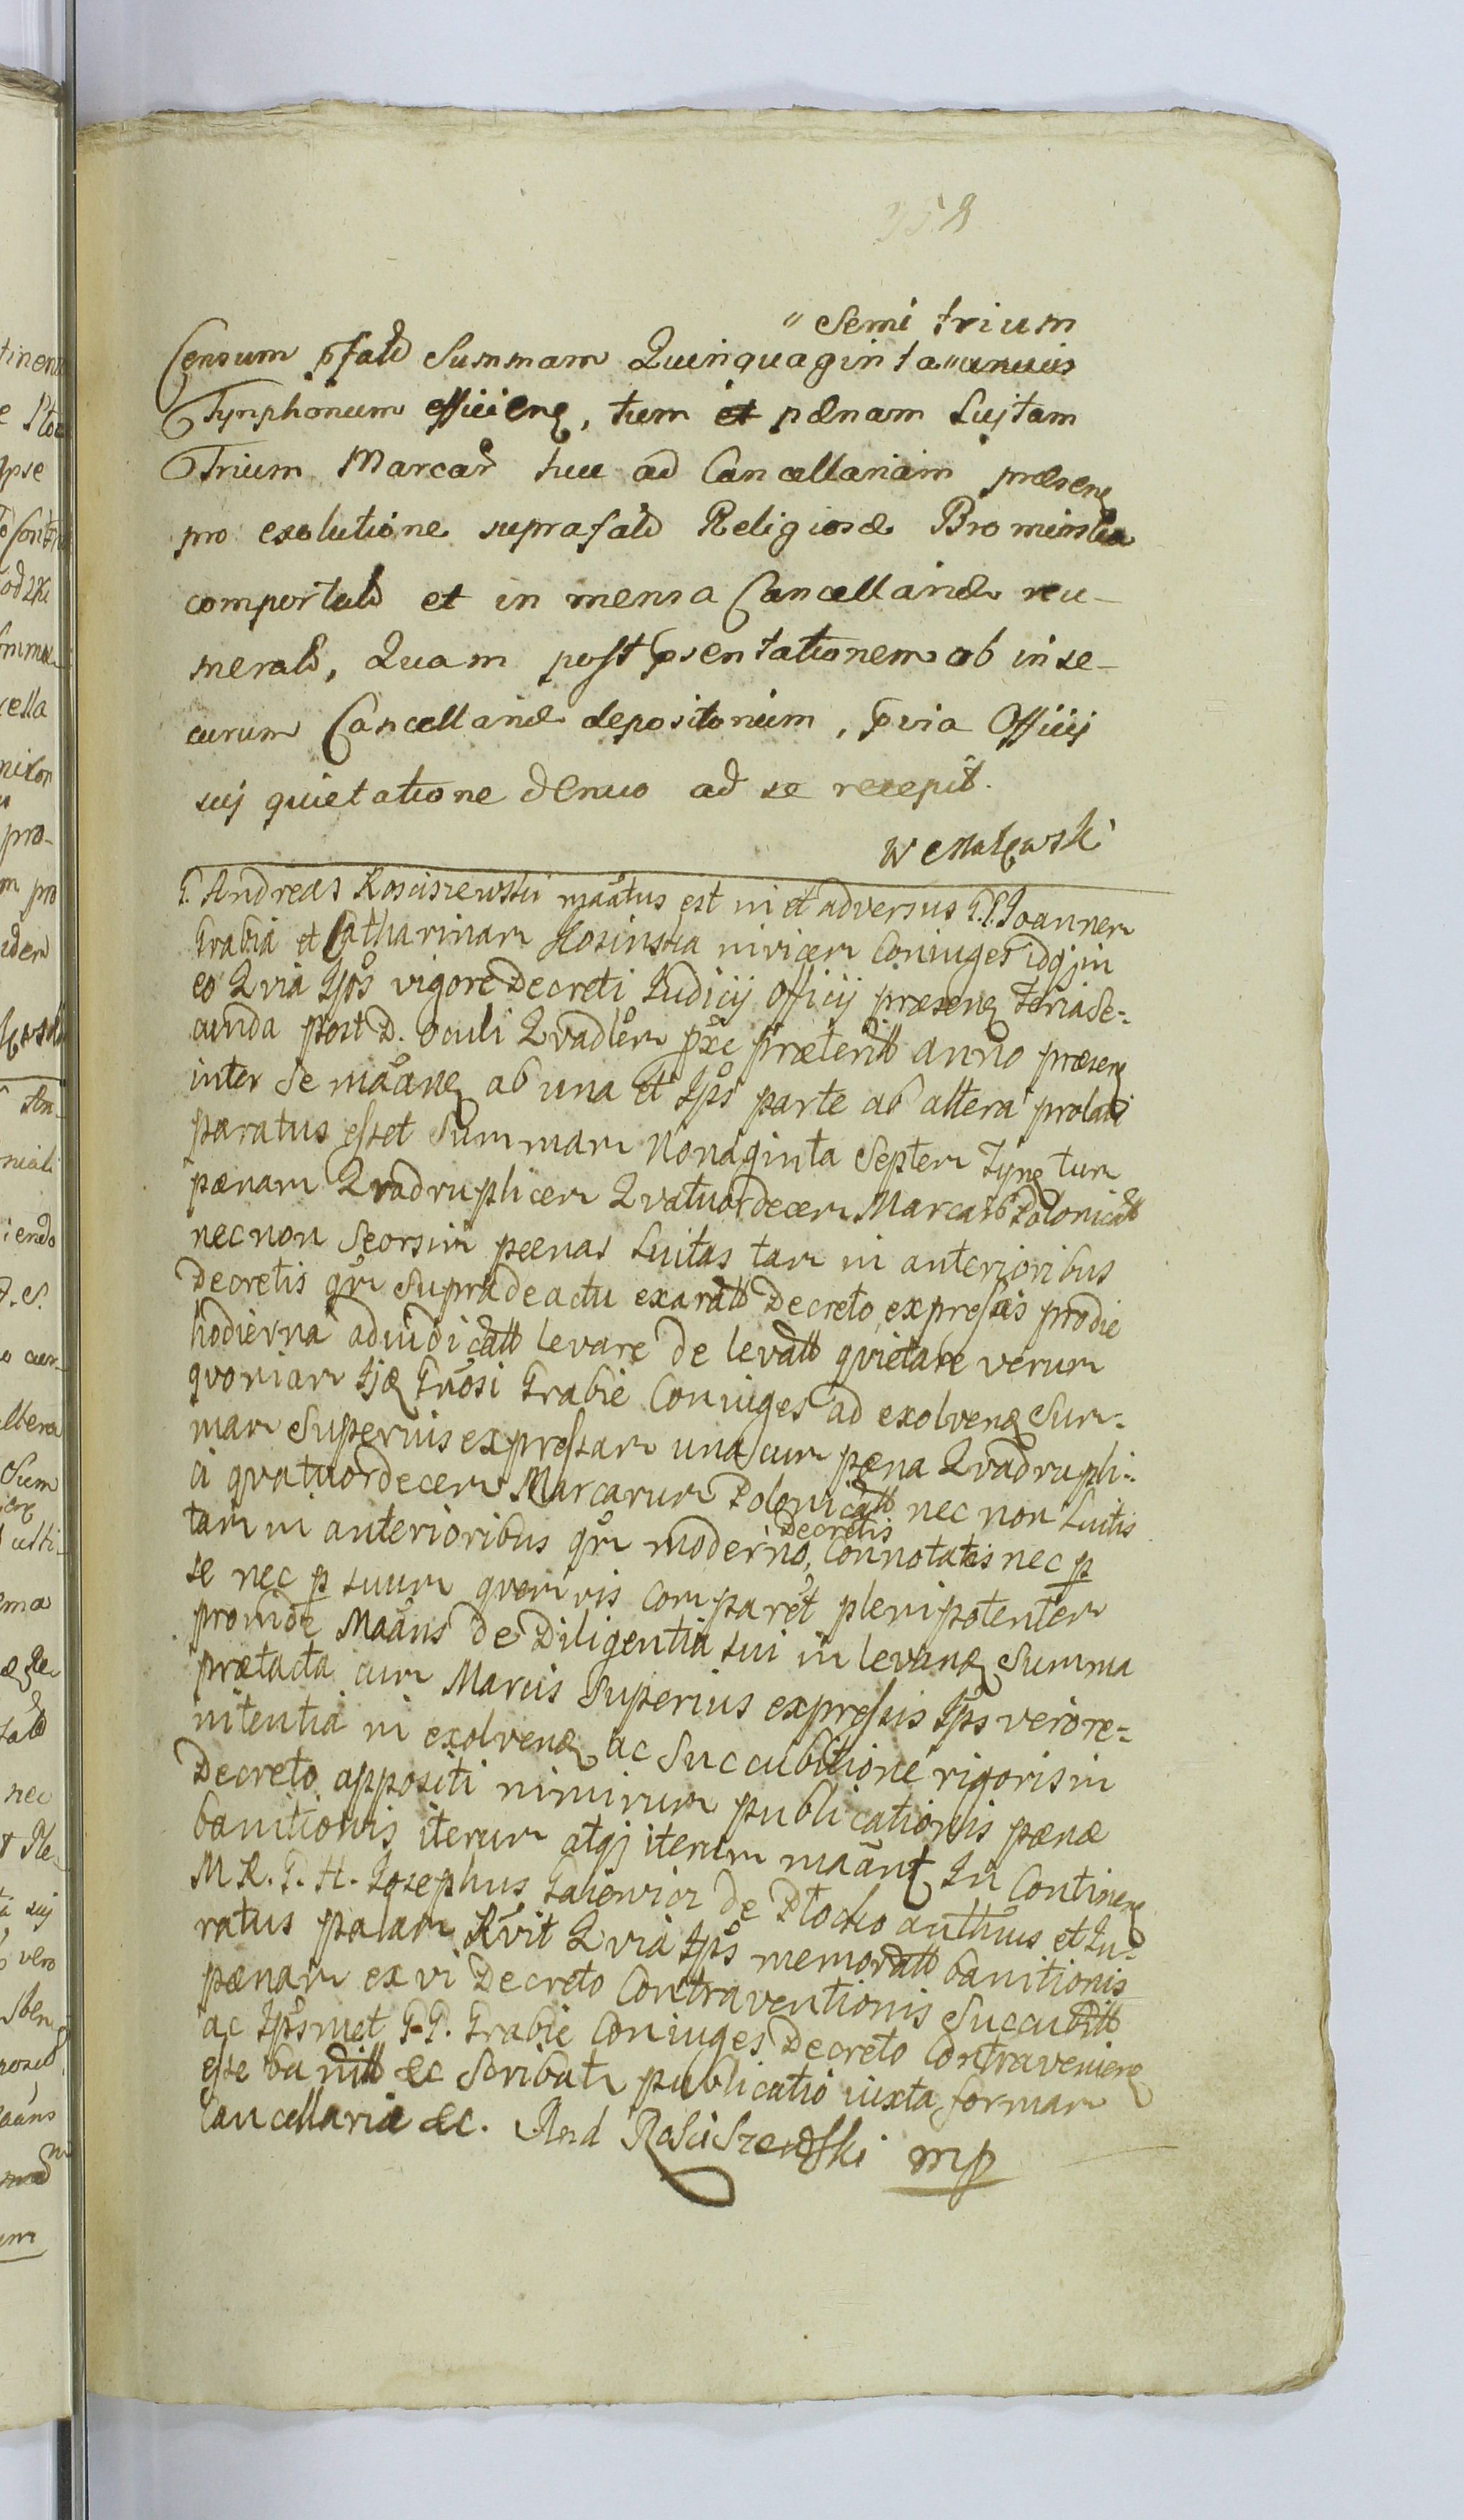 358
" Semi trium
Censum pfatã Summam Quinquaginta " unius
Tynphonum efficienȩ, tum et pænam Lujtam
Trium Marcar̃ huc ad Cancellariam præsenȩ
pro exolutione suprafatã Religiosæ Bromirska
comportatã et in mensa Cancellariæ nu-
meratã, Quam post psentationem ob inse-
curum Cancellariæ depositorium, pvia Officij
sui quietatione denuo ad se recepit.
W Malewski
G. Andreas Kosciszewski maãtus est in et adversus G.G. Joannem
Grabia et Catharinam Kosinska invicem Coniuges idq; in
eo Qvia Ipõs vigore Decreti Judicij Officij præsenȩ Feria Se-
cunda post D. Oculi Qvadlem pxe præteritt anno præsenȩ
inter Se maãnȩ ab una et Ipõs parte ab altera prolati
paratus esset Summam Nonaginta Septem Tynȩ tum
pænam Qvadruplicem Qvatuordecem Marcarũ Polonicatt
nec non Seorsim pænas Luitas tam in anterioribus
Decretis qm Supra de actu exaratt Decreto expressas pro die
hodierna adiudicatt levare de levatt qvietare verum
qvoniam Ijdȩ Gnõsi Grabie Coniuges ad exolvenȩ Sum-
mam Superius expressam una cum pæna Qvadrupli-
ci qvatuordecem Marcarum Polonicatt nec non Luitis
tam in anterioribus qm moderno Decretis Connotatis nec p
se nec p suum qvemvis comparẽt plenipotentem
proinde Maãns de Diligentia sui in levanȩ Summa
prætacta cum Marcis Superius expressis Ipõs vero re-
nitentia in exolvenȩ ac Succubitione rigoris in
Decreto appositi nimirum publicationis pænæ
banitionis iterum atq; iterum maãnt In Continenȩ
M R. G. H. Josephus Gaiewicz de Płocko authus et Iu-
ratus palam Rvit Qvia Ipõs memoratt banitionis
pænam ex vi Decreto Contraventionis Succubitt
ac Ipõsmet G.G. Grabie Coniuges Decreto Contravenienȩ
esse banitt &c Scribatr publicatio iuxta formam
Cancellaria &c. And Rosciszewski mp